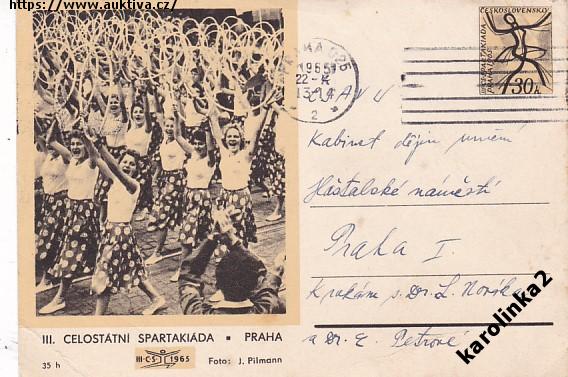 https://www.auktiva.cz/
III. CELOSTÁTNÍ SPARTAKIÁDA ▪ PRAHA
35 h
III·CS 1965
Foto: J. Pilmann
PRAHA
1965
22-
13
2
ČESKOSLOVENSKO
III. SPARTAKIÁDA
PRAHA 1965
30h
ČSAV
Kabinet dějin umění
Háštalské náměstí
Praha I.
K rukám s. Dr. L. Nováka
a Dr. E. Petrové
karolinka2